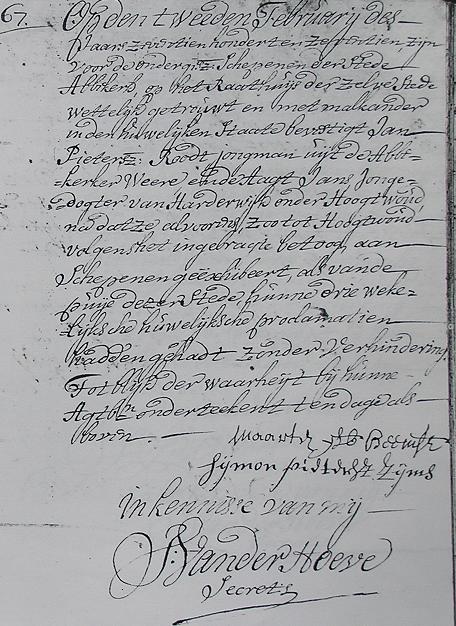 67. Op den tweeden Februarij des
Jaars zeventienhondert en zestentien zijn
voor de ondergesz: Schepenen der Stede
Abbekerk, op het Raathuijs der zelve Stede
wettelijk getrouwt en met malkander
in den huwelijken Staate bevestigt Jan
Pietersz: Roodt jongman uijt de Abbe-
=kerker Weere ende Aagt Jans, Jonge-
=dogter van Harderwijk onder Hoogtwoud
na dat ze alvorens, zoo tot Hoogtwoud
volgens het ingebragte betoog, aan
Schepenen geëxhibeert, als van de
puije dezer Stede, hunne drie weke-
=lijksche huwelijksche proclamatien
hadden gehadt zonder Verhindering,
Tot blijk der waarheijt bij hunne
Agtb:n onderteekent ten dage als
boven.
Maarten
Sijmon pieterst Zijms
in kennisse van mij
VanderHoeve
Secrets